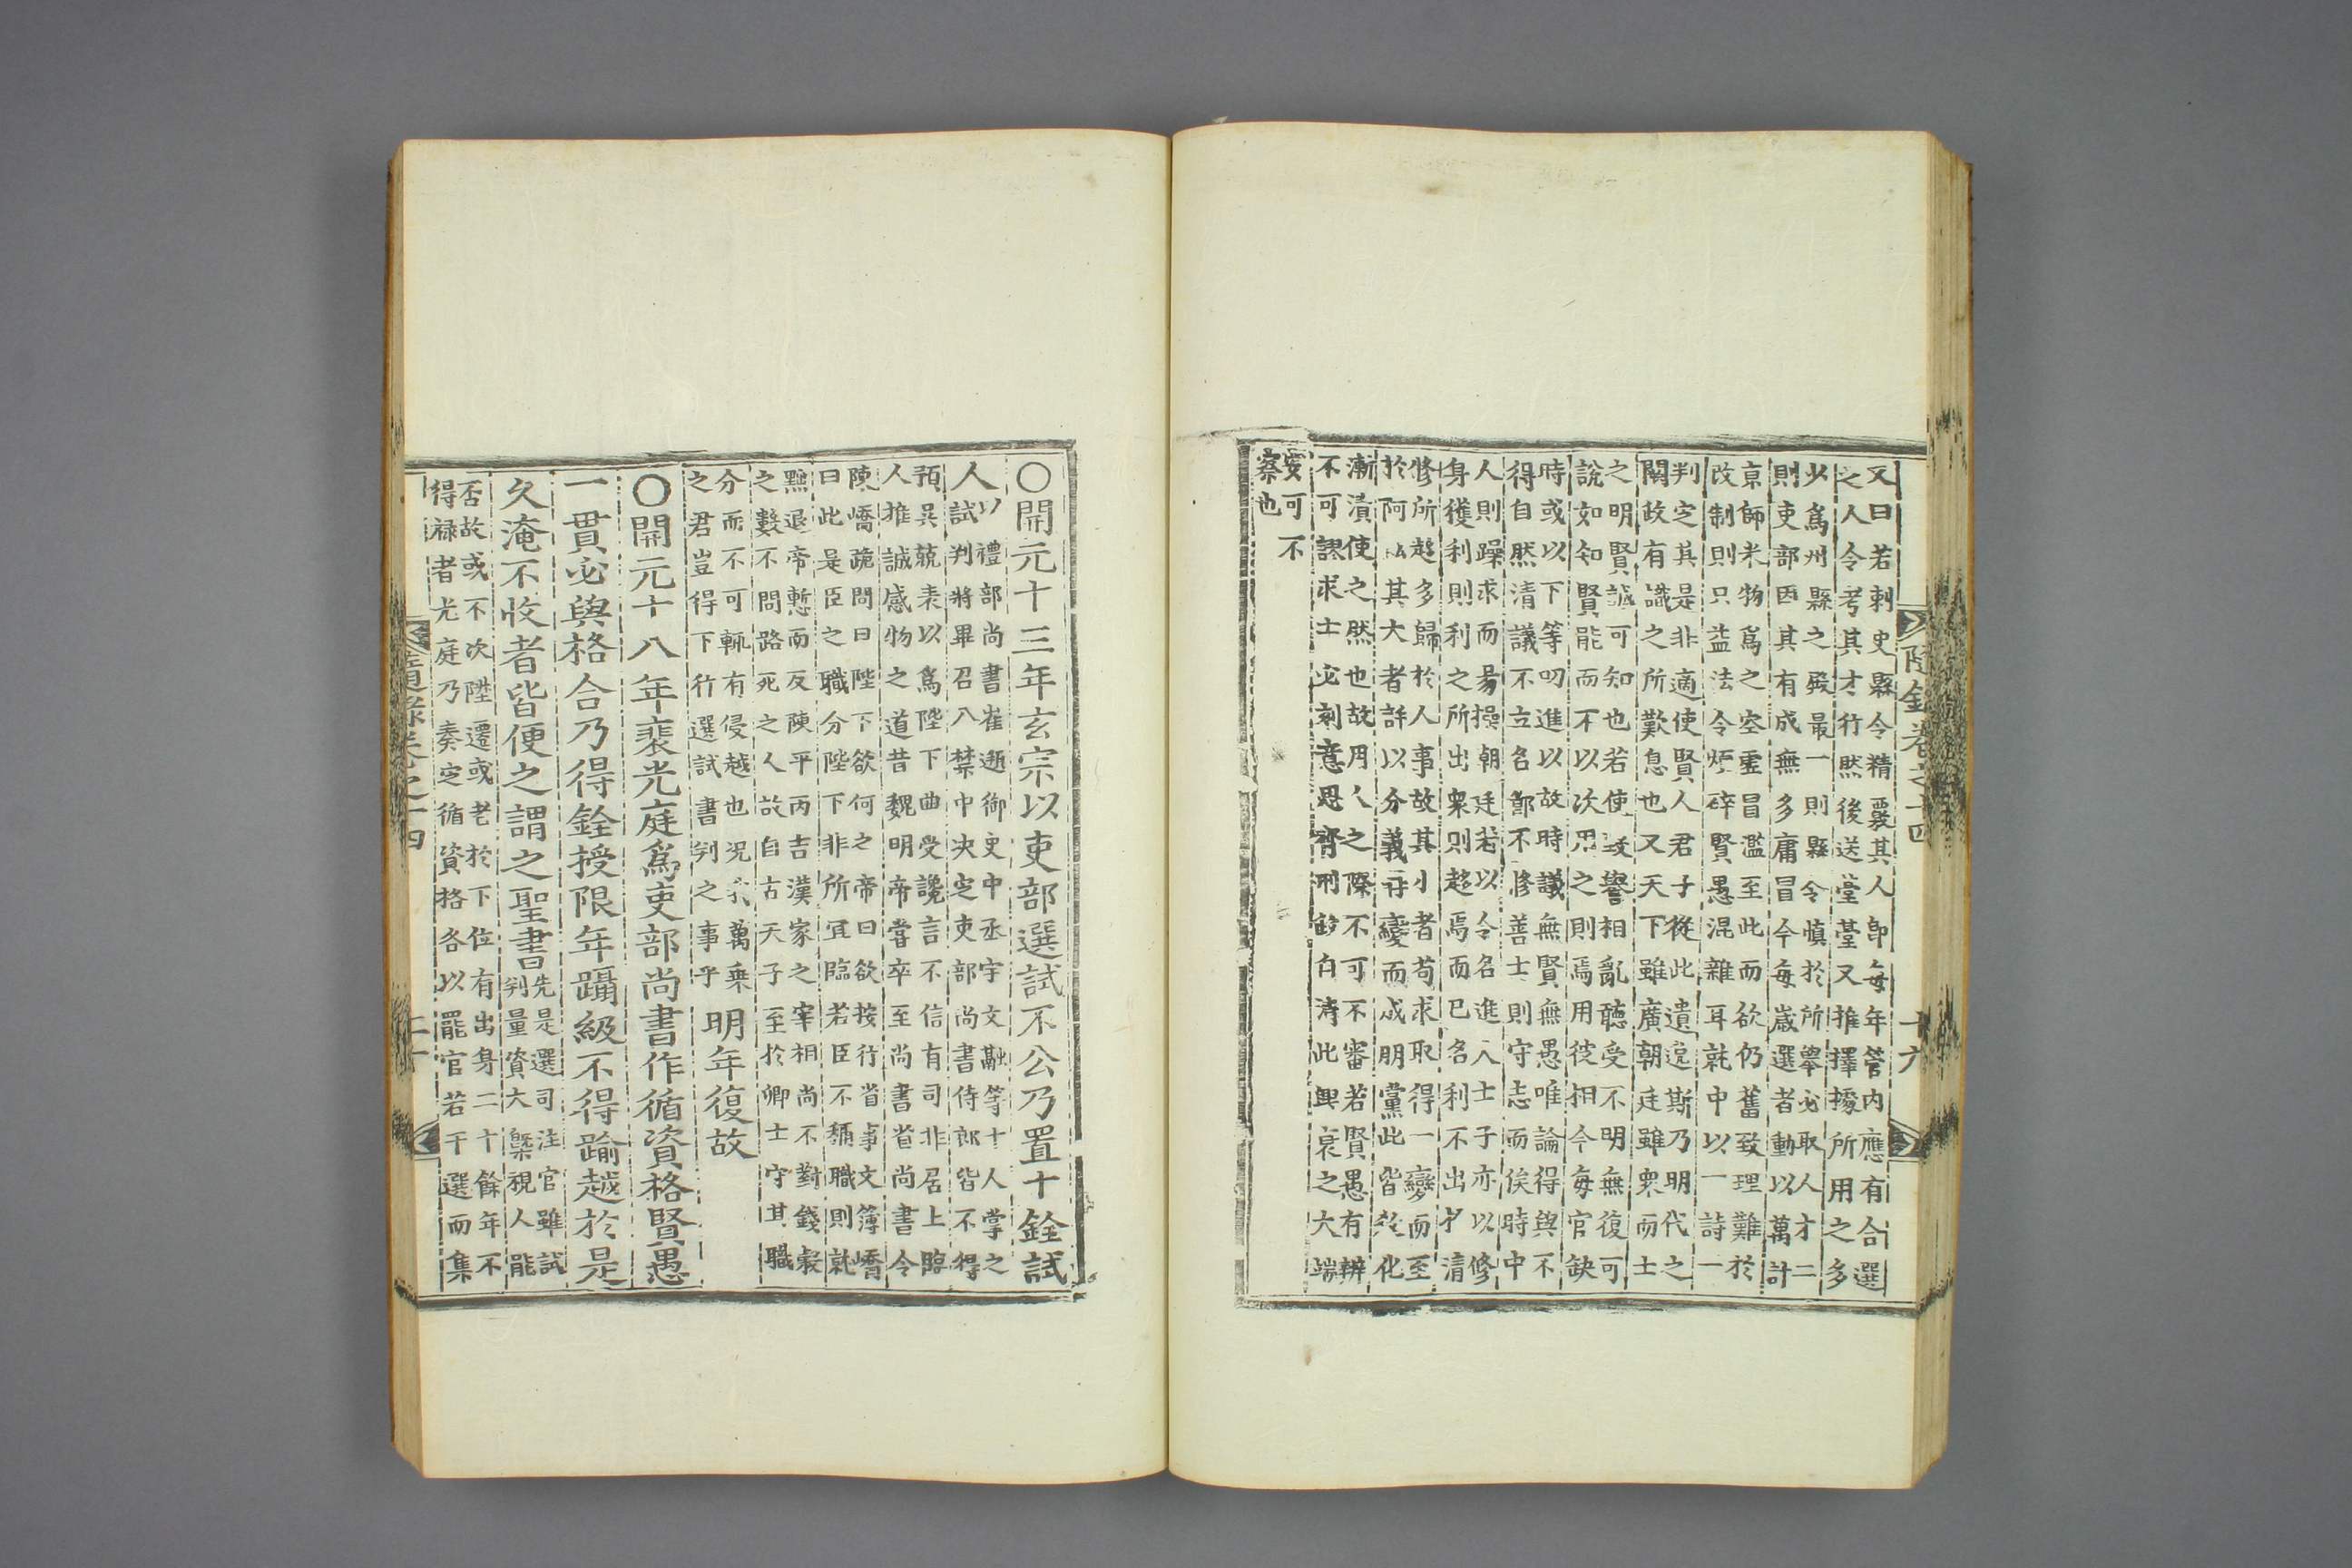 又曰若刺史縣令精覈其人卽每年管內應有合選
之人令考其才行然後送臺臺又推擇據所用之多
少爲州縣之殿最一則縣令愼於所擧必取人才二
則吏部因其有成無多庸冒今每歲選者動以萬計
京師米物爲之空虛冒濫至此而欲仍舊致理難於
改制則只益法令煩碎賢愚混雜耳就中以一詩一
判定其是非適使賢人君子從此遺逸斯乃明代之
闕政有識之所歎息也又天下雖廣朝廷雖衆而士
之明賢誠可知也若使毀譽相亂聽受不明無復可
說如知賢能而不以次用之則焉用彼相今每官缺
時或以下等叨進以故時議無賢無愚唯論得與不
得自然淸議不立名節不修善士則守志而俟時中
人則躁求而易操朝廷若以令名進人士子亦以修
身獲利利之所出衆則趨焉而已名利不出才淸
修所趨多歸於人事故其小者苟求取得一變而至
於阿私其大者許以分義再變而成朋黨此皆敎化
漸漬使之然也故用人之際不可不審若賢愚有辨
不可謬求士必刻意思齊刑自淸此興衰之大端
安可不
察也
隨錄卷之十四
十六
〇開元十三年玄宗以吏部選試不公乃置十銓試
人以禮部尙書崔御史中丞宇文融等十人掌之
試判將畢召入禁中決定吏部尙書侍郞皆不得
預吳兢表以爲陛下曲受讒言不信有司非居上臨
人推誠感物之道昔魏明帝嘗卒至尙書省尙書令
陳矯跪問曰陛下欲何之帝曰欲按行省事文簿矯
曰此是臣之職分陛下非所宜臨若臣不稱職則就
黜退帝慙而反陳平丙吉漢家之宰相尙不對錢穀
之數不問路死之人故自古天子至於卿士守其職
分而不可輒有侵越也況萬乘
之君豈得下行選試書判之事乎明年復故
〇開元十八年裴光庭爲吏部尙書作循資格賢愚
一貫必與格合乃得銓授限年躡級不得踰越於是
久淹不收者皆便之謂之聖書先是選司注官雖試
判量資大槩視人能
否故或不次陞遷或老於下位有出身二十餘年不
得祿者光庭乃奏定循資格各以罷官若干選而集
隨錄卷之十四